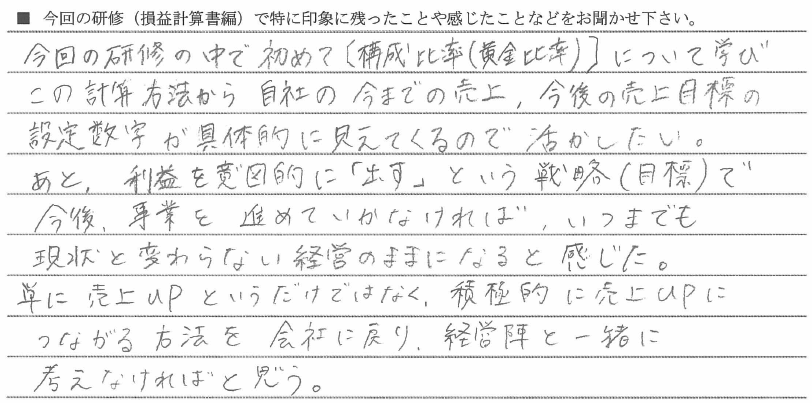 ■ 今回の研修（損益計算書編）で特に印象に残ったことや感じたことなどをお聞かせ下さい。
今回の研修の中で初めて〔構成比率(黄金比率)〕について学び
この計算方法から自社の今までの売上，今後の売上目標の
設定数字が具体的に見えてくるので活かしたい。
あと，利益を意図的に「出す」という戦略(目標)で
今後，事業を進めていかなければ，いつまでも
現状と変わらない経営のままになると感じた。
単に売上UPというだけではなく，積極的に売上UPに
つながる方法を会社に戻り，経営陣と一緒に
考えなければと思う。